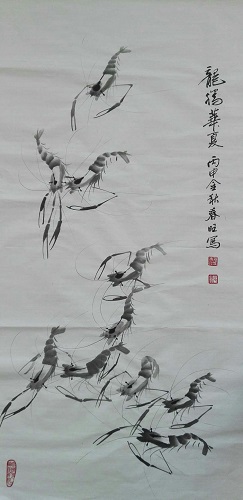 龍腾華夏 丙申金秋春旺寫